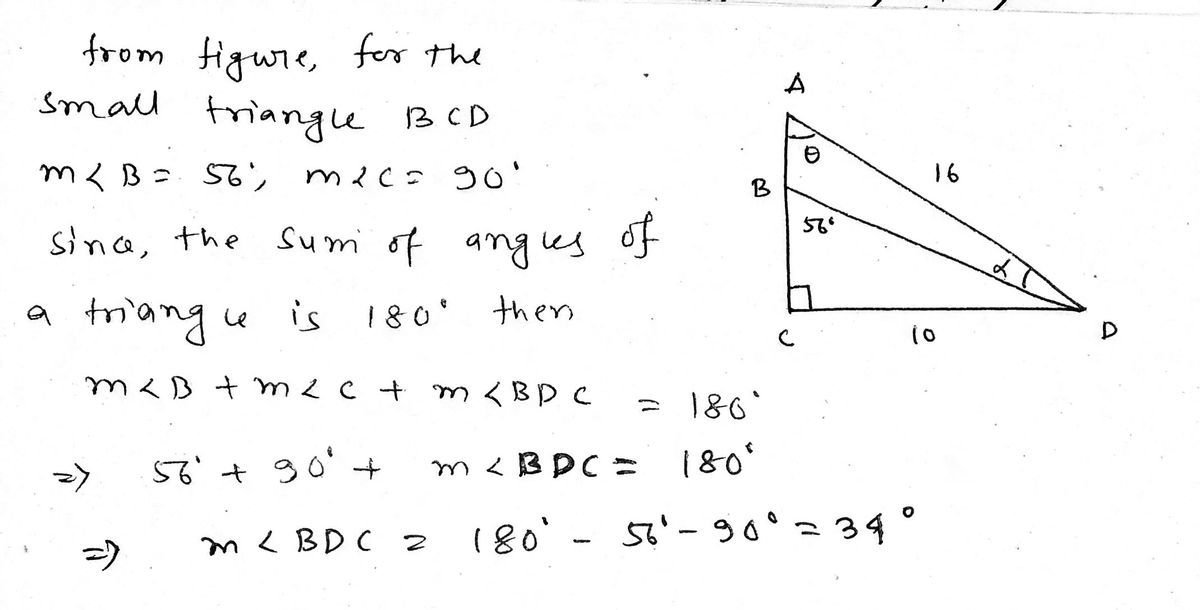 from figure, for the
small triangle BCD
m<B = 56°, m<C = 90°
since, the sum of angles of
a triangle is 180° then
m<B + m<C + m<BDC = 180°
=> 56° + 90° + m<BDC = 180°
=> m<BDC = 180° - 56° - 90° = 34°
A
θ
16
B
56°
α
C
10
D